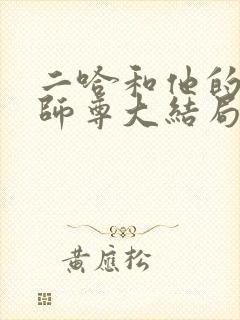 二哈和他的
師尊大結局
黃應松